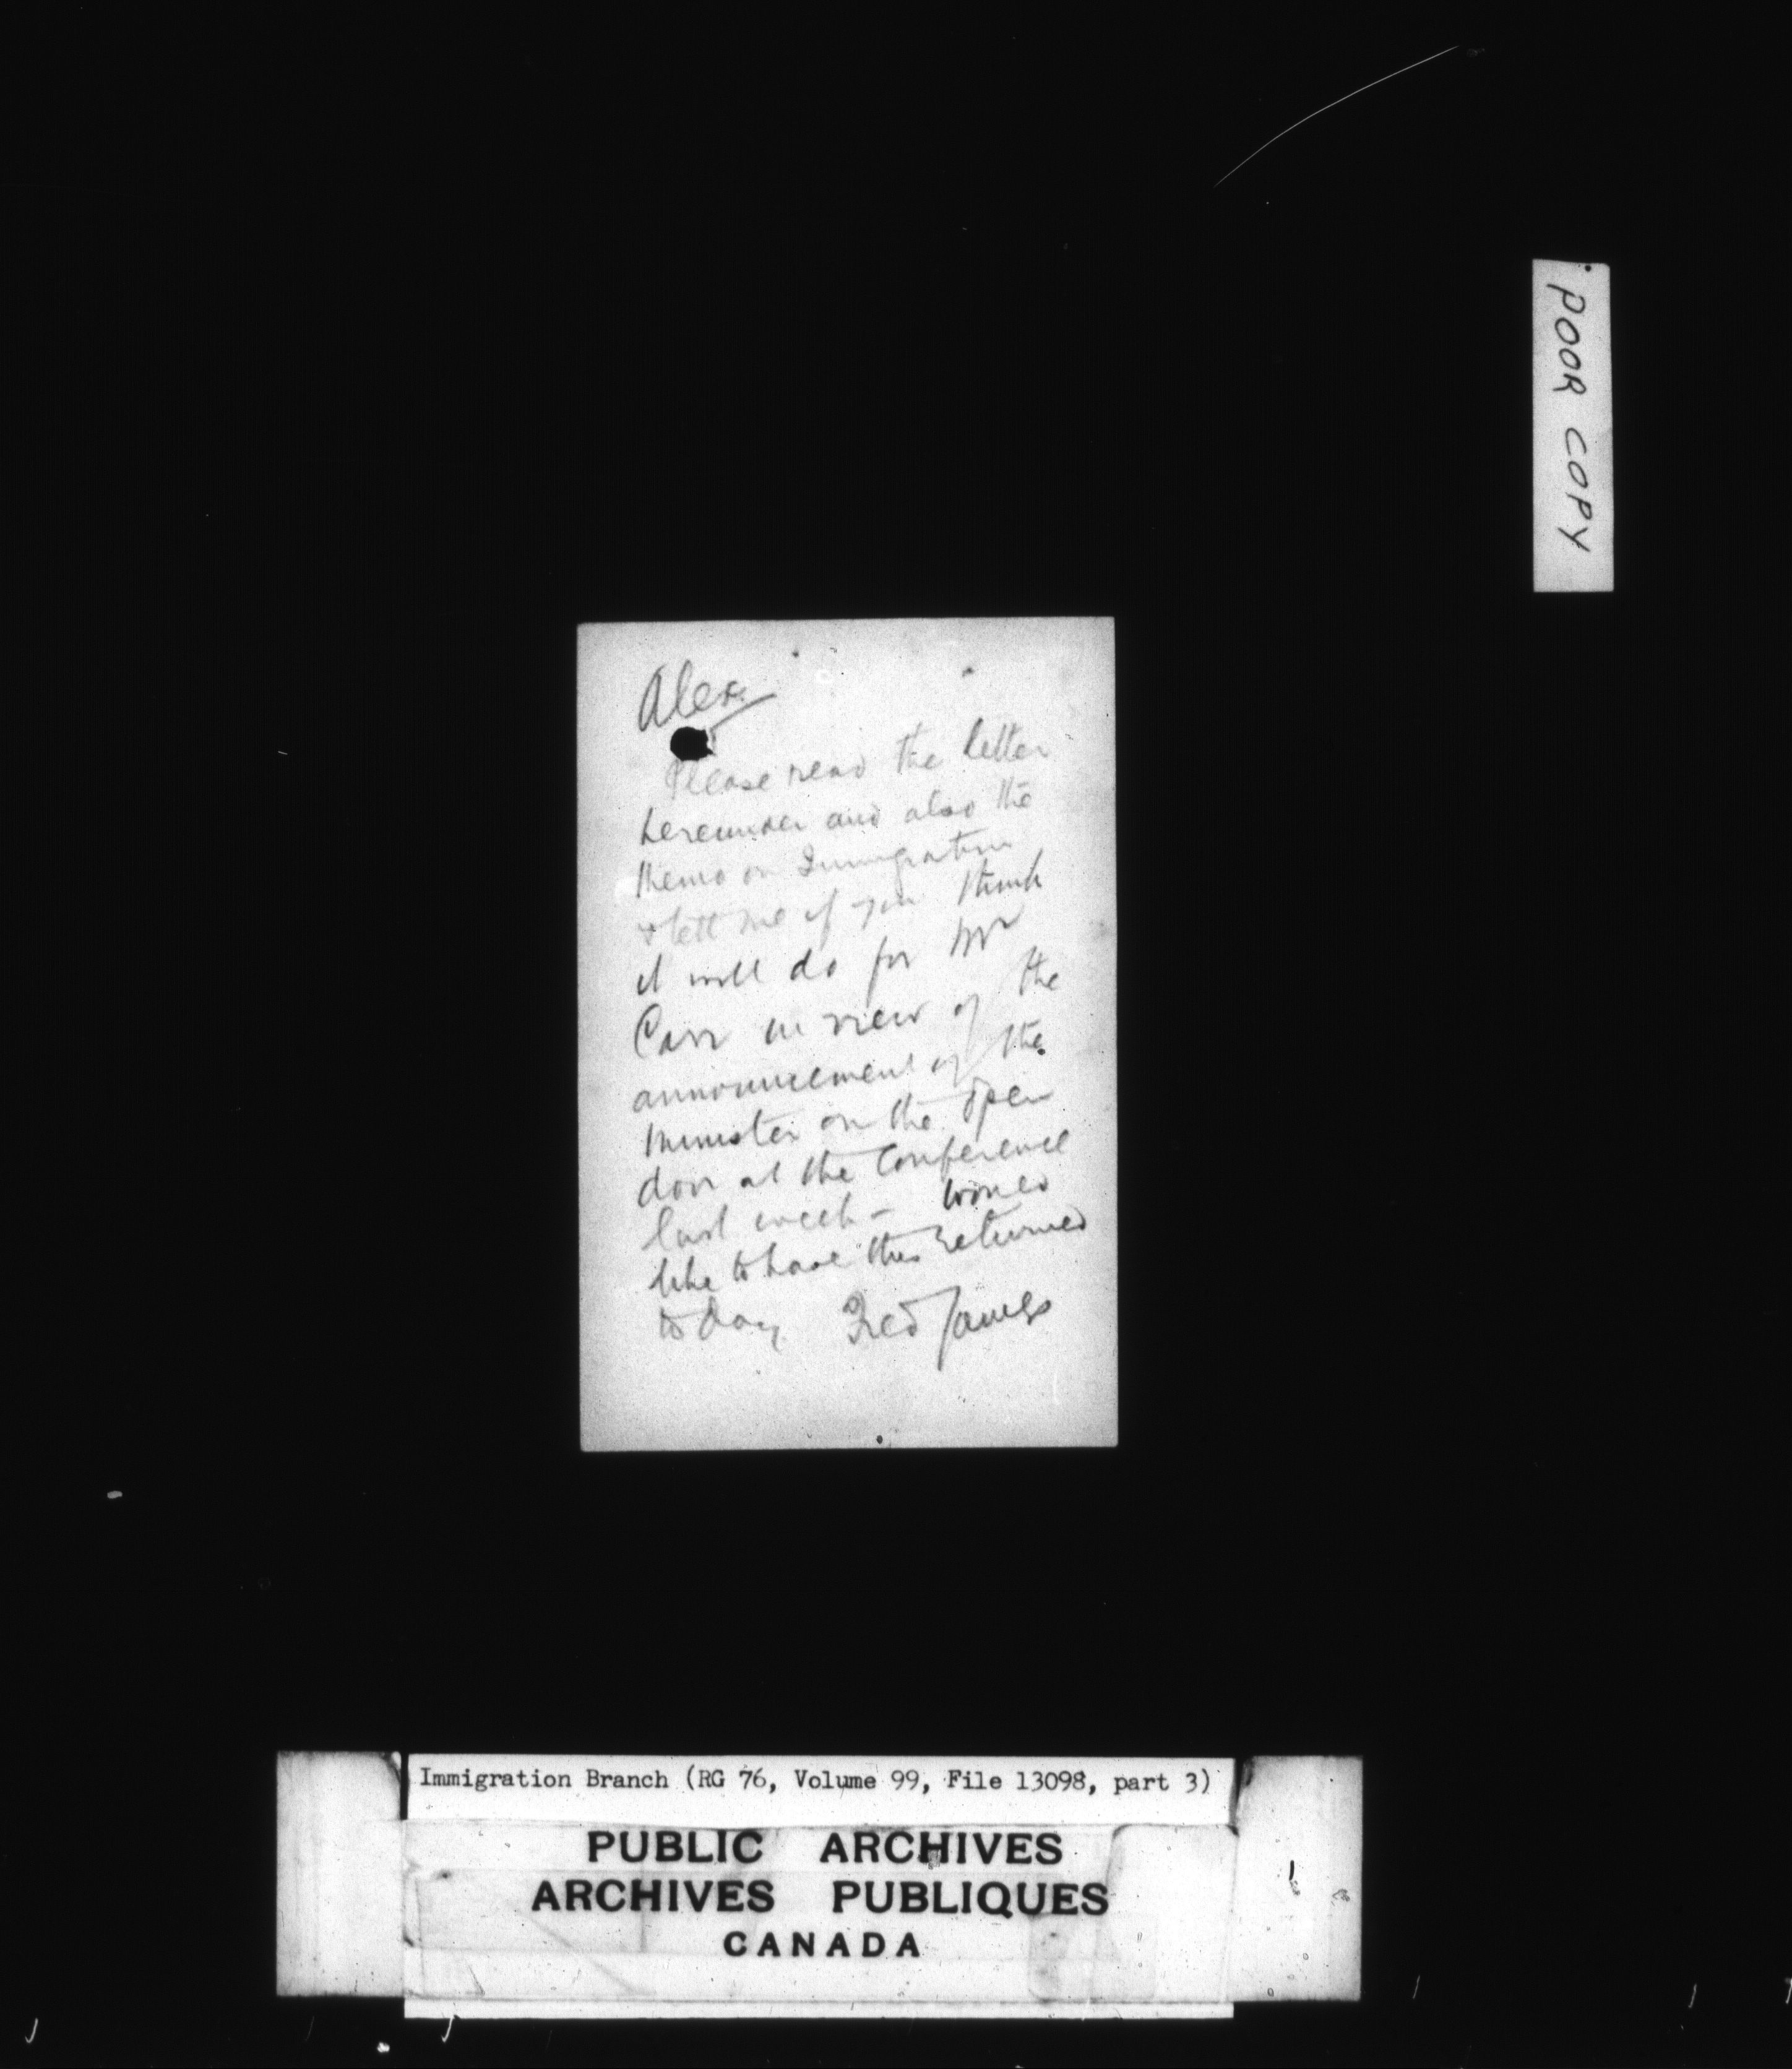 POOR COPY
Alex.
Please read the letter
hereunder and also the
memo on Immigration
& tell me if you think
it will do for Mr
Carr in view of the
announcement of the
Minister on the open
door at the Conference
last week - Would
like to have this returned
to day Fred James
Immigration Branch (RG 76, Volume 99, File 13098, part 3)
PUBLIC ARCHIVES
ARCHIVES PUBLIQUES
CANADA